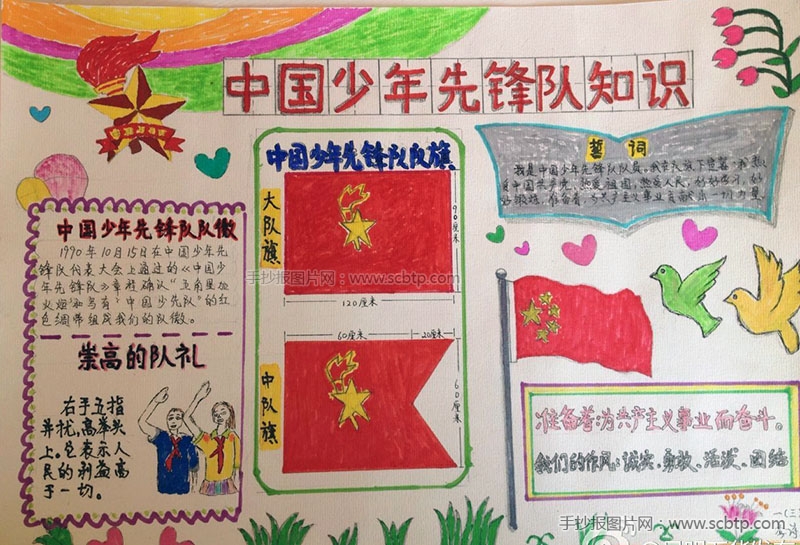 中国少年先锋队知识
中国少年先锋队队旗
大队旗
90厘米
120厘米
60厘米
20厘米
中队旗
60厘米
中国少年先锋队队徽
1990年10月15日在中国少年先
锋队代表大会上通过的《中国少
年先锋队》章程确认"五角星加
火炬和写有"中国少先队"的红
色绸带组成我们的队徽。
崇高的队礼
右手五指
并拢,高举头
上。它表示人
民的利益高
于一切。
誓词
我是中国少年先锋队队员。我在队旗下宣誓
中国共产党,热爱祖国,热爱人民,好好学习,好
好锻炼,准备着,为共产主义事业贡献一切力量
准备着:为共产主义事业而奋斗。
我们的作风:诚实、勇敢、活泼、团结
一(三
手抄报图片网:www.scbtp.com
手抄报图片网:www.scbtp.com